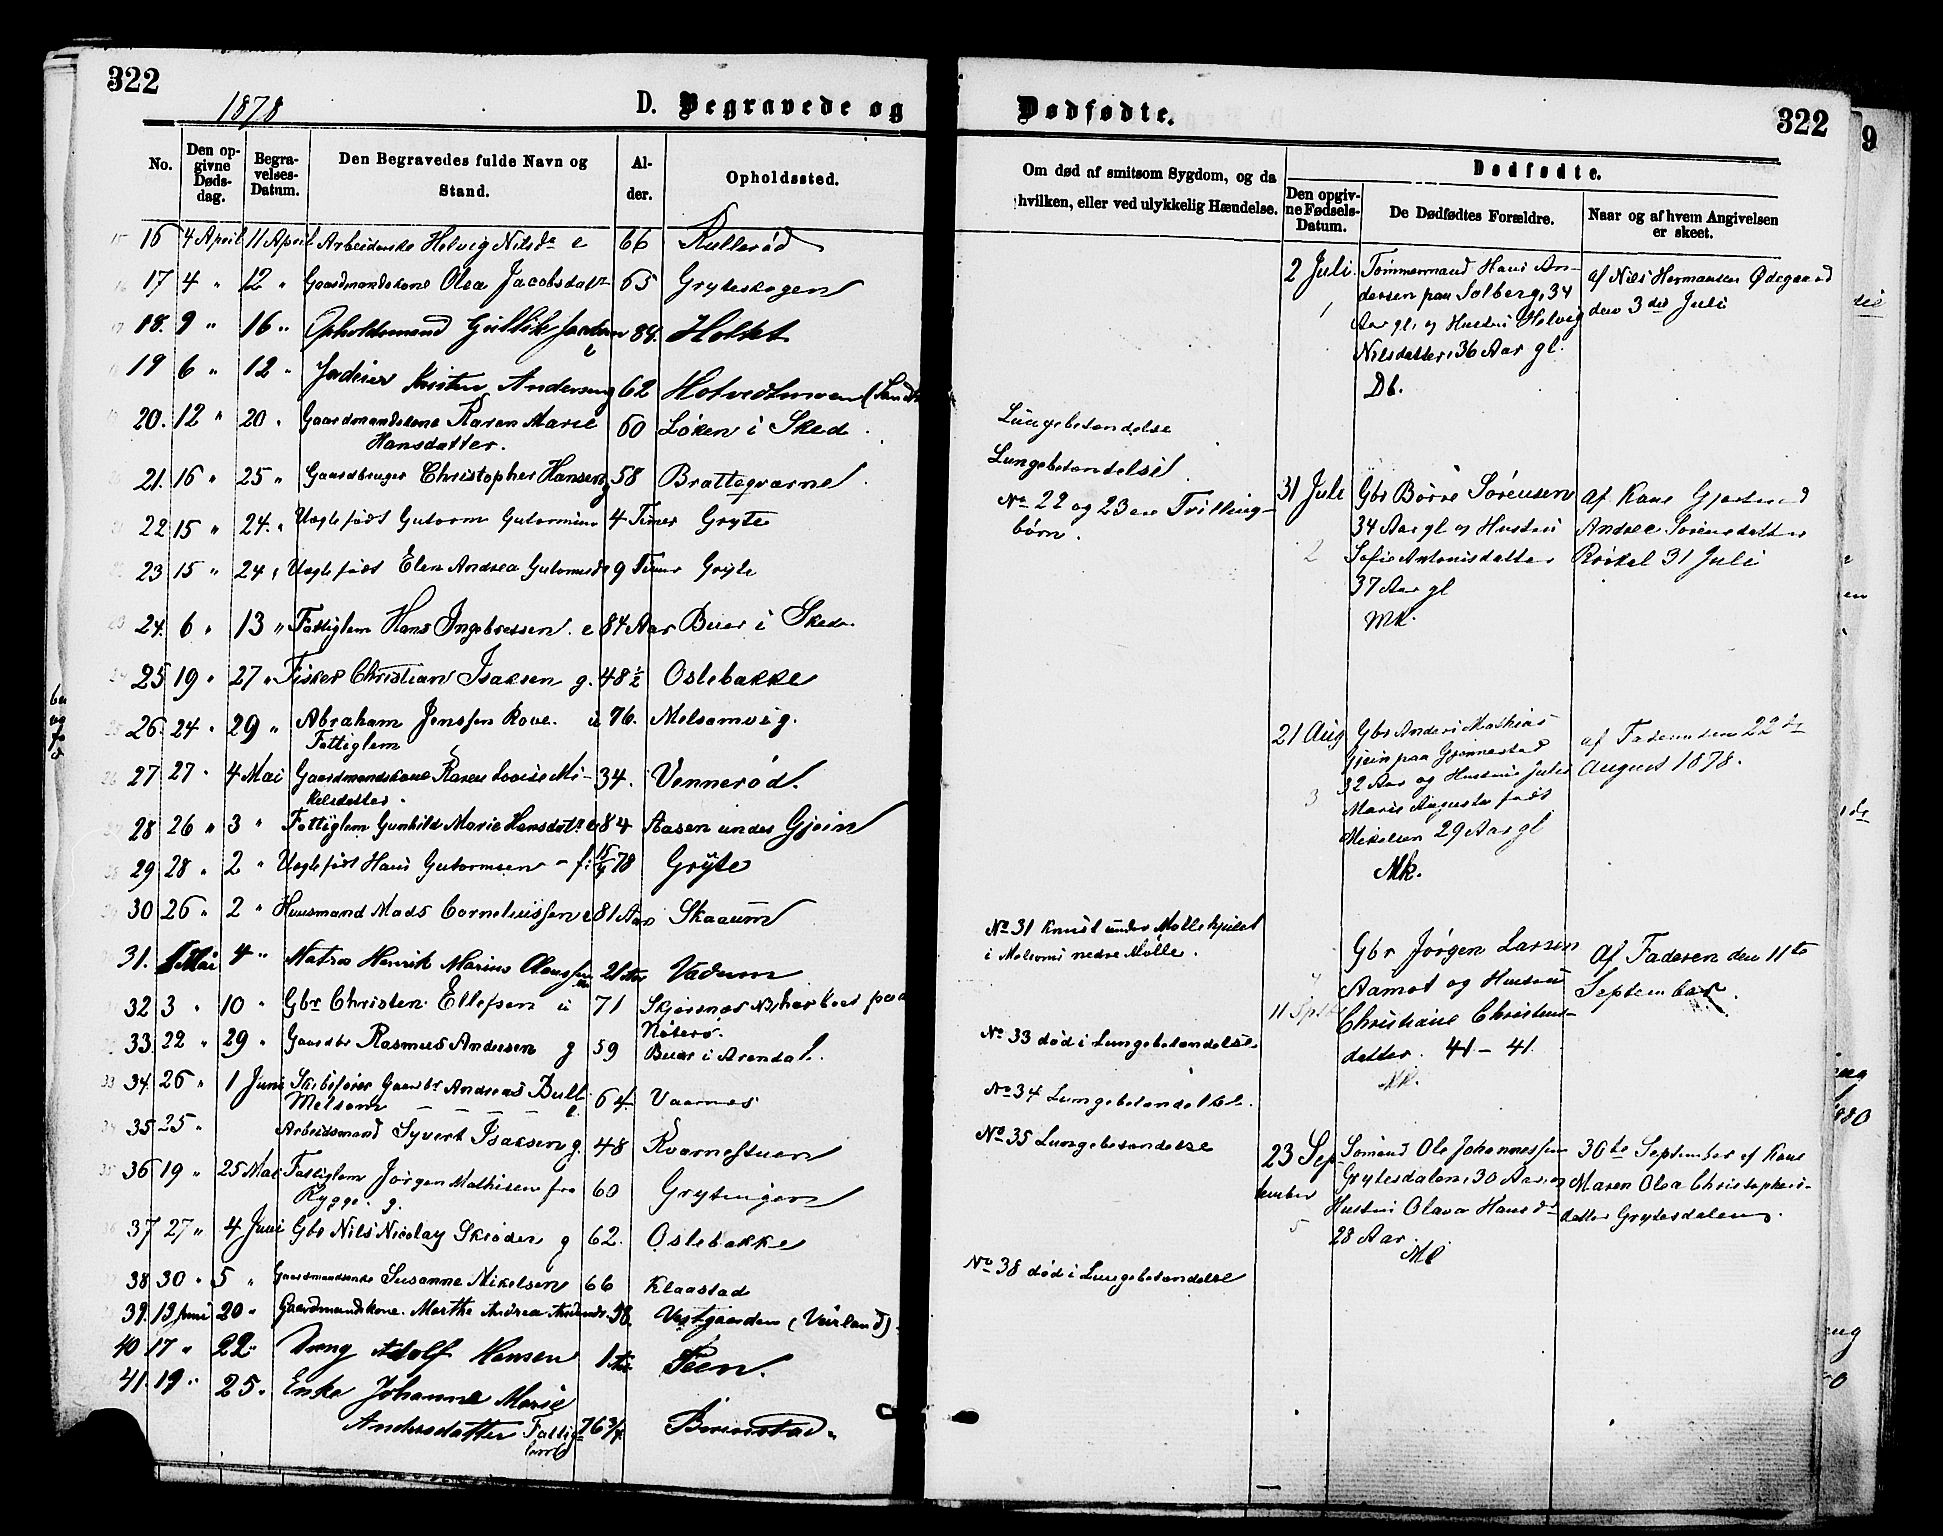 322
1878
D. Begravede og
No.
Den op-
givne
Døds-
dag.
Begra-
velses-
Datum.
Den Begravedes fulde Navn og
Stand.
Al-
der.
Opholdssted.
16 4 April 11 April Arbeiderske Helvig Nilsdr e 66 Rullerød
17 4 " 12 " Gaardmandskone Olea Jacobsdatr 65 Gryteskogen
18. 9 " 16 " Opholdsmand Gullik 84. Holtet
19 6 " 12 " Inderst Kristen Andersen g 62 Hotvedtmoen (Sand
20. 12 " 20 " Gaardmandskone Karen Marie 60 Løken i Sked
Hansdatter.
21. 16 " 25 " Gaardbruger Christopher Hansen g 58 Brattegvarne
22 15 " 24. " Uegte født Gutorm Gutormsen 4 Timer Gryte
23 15 " 24 " Uegte født Elen Andrea Gutormsd 9 Timer Gryte
24. 6 " 13 " Fattiglem Hans Ingebretsen. e 84 Aar Buer i Skede
25 19 " 27 " Fisker Christian Isaksen g. 48½ Ostebakke
26. 24 " 29 " Abraham Jenssen Rove. u 76. Melsomvig.
Fattiglem
27 27 " 4 Mai Gaardmandskone Karen Lovise Mi- 34. Vennerød.
kelsdatter.
28 26 " 3 " Fattiglem Gunhild Marie Hansdatr e 84 Aasen under Gjein
29 28 " 2 " Uegte født Hans Gutormsen - f: 15/4 78 Gryte
30 26 " 2 " Huusmand Mads Corneliussen e 81 Aar Skaaum
31. 1 Mai 4 " Matros Henrik Marius Olaussen 21 Aar Vadum
32 3 " 10 " Gbr Christen Ellefsen u 71 Skjersnæs NB, har boet paa
Nøterø.
33. 22 " 29 " Gaardbr Rasmus Andersen g 59 Buer i Arendal.
34. 26 " 1 Juni Skibsfører Gaardbr Andreas Bull
Melsom e 64. Vaarnes
35 25 " Arbeidsmand Syvert Isaksen g. 48 Kvarnestuen
36 19 " 25 Mai Fattiglem Jørgen Mathisen fra 60 Grytingen
Rygge. g.
37 27 " 4 Juni Gbr Nils Nicolay Skrøder g 62. Ostebakke
38 30 " 5 " Gaardmandsenke Susanne Mikelsen 66 Klaastad
39. 13 Juni 20 " Gaardmandskone. Marthe Andrea 58. Vestgaarden (Veirland).
40 17 " 22 " Dreng Adolf Hansen 1 Aar Teen.
41. 19 " 25 " Enke Johanne Marie
Andersdatter Fattig- 76 3/4
lem
322
Dødfødte.
Om død af smitsom Sygdom, og da
hvilken, eller ved ulykkelig Hændelse.
Dødfødte.
Den opgiv-
ne Fødsels-
Datum.
De Dødfødtes Forældre.
Naar og af hvem Angivelsen
er skeet.
Lungebetændelse
Lungebetændelse
No 22 og 23 ere Trilling-
børn.
No 31 knust under Møllehjulet
i Melsoms nedre Mølle.
No 33 død i Lungebetændelse.
No 34 Lungebetændelse.
No 35 Lungebetændelse
No 38 død i Lungebetændelse
2 Juli.
1
Tømmermand Hans An-
dersen paa Solberg, 34
Aar gl, og Hustru Helvig
Nilsdatter, 36 Aar gl.
Db.
af Nils Hermansen Ødegaard
den 3die Juli
31 Juli
2
Gbr Børre Sørensen
34 Aar gl og Hustru
Sofie Antonisdatter
37 Aar gl
Mk.
af Kone Gjertrud
Andrea Sørensdatter
Røkel 31 Juli
21 Aug
3
Gbr Anders Mathias
Gjein paa Gjennestad
32 Aar og Hustru Julie
Marie Augusta født
Mikelsen 29 Aar gl
Mk.
af Faderen den 22de
August 1878.
11 Sptb
4
Gbr Jørgen Larsen
Aamot og Hustru
Christiane Christens-
datter. 41 - 41.
Mk.
Af Faderen den 11te
September.
23 Sep-
tember
5
Sømand Ole Johannessen
Grytesdalen, 30 Aar, og
Hustru Olava Hansdr
28 Aar.
Mk
30te September af Kone
Maren Olea Christophers-
datter Grytesdalen.